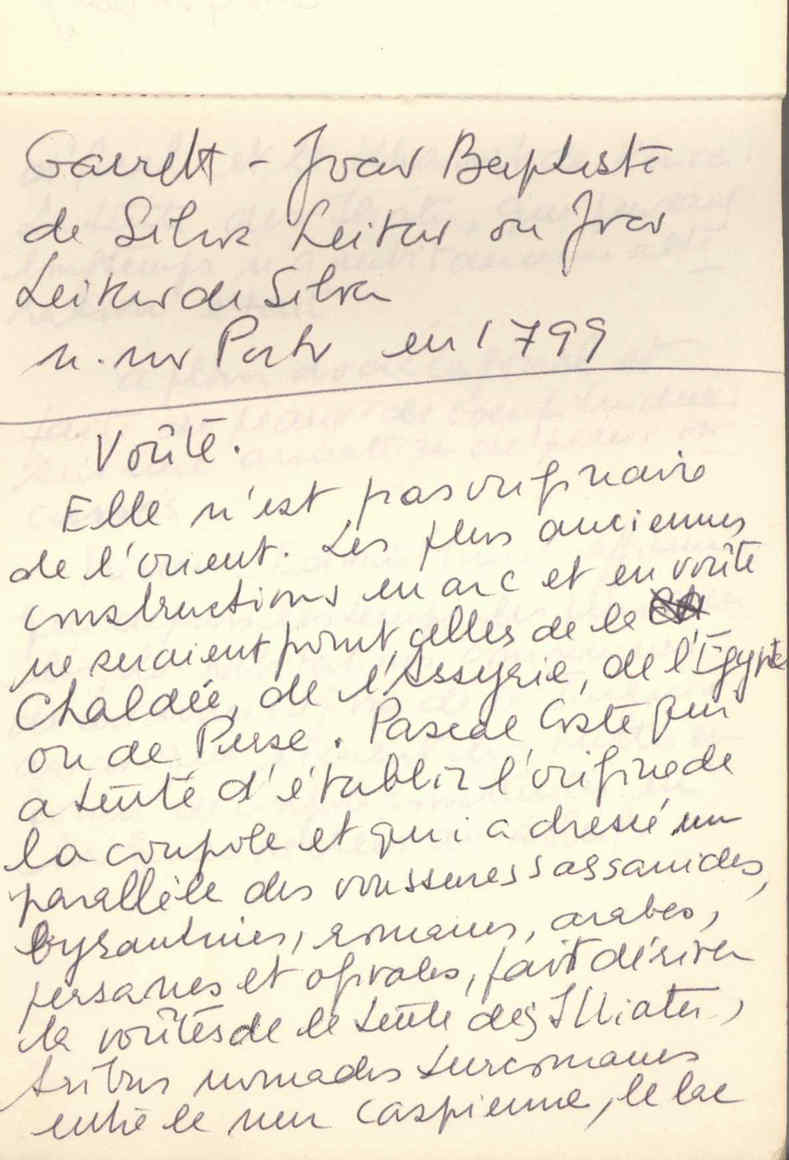 Garrett - Joao Baptiste
de Silva Leitao ou Joao
Leitao da Silva
n. no Porto en 1799
Voûte.
Elle n'est pas originaire
de l'orient. Les plus anciennes
constructions en arc et en voûte
ne seraient point celles de la
Chaldée, de l'Assyrie, de l'Egypte
ou de Perse. Pascal Coste qui
a tenté d'établir l'origine de
la coupole et qui a dressé un
parallèle des voussures sassanides,
byzantines, romanes, arabes,
persanes et ogivales, fait dériver
la voûtes de le tente des Illiates,
tribus nomades turcomanes
entre le mer caspienne, le lac